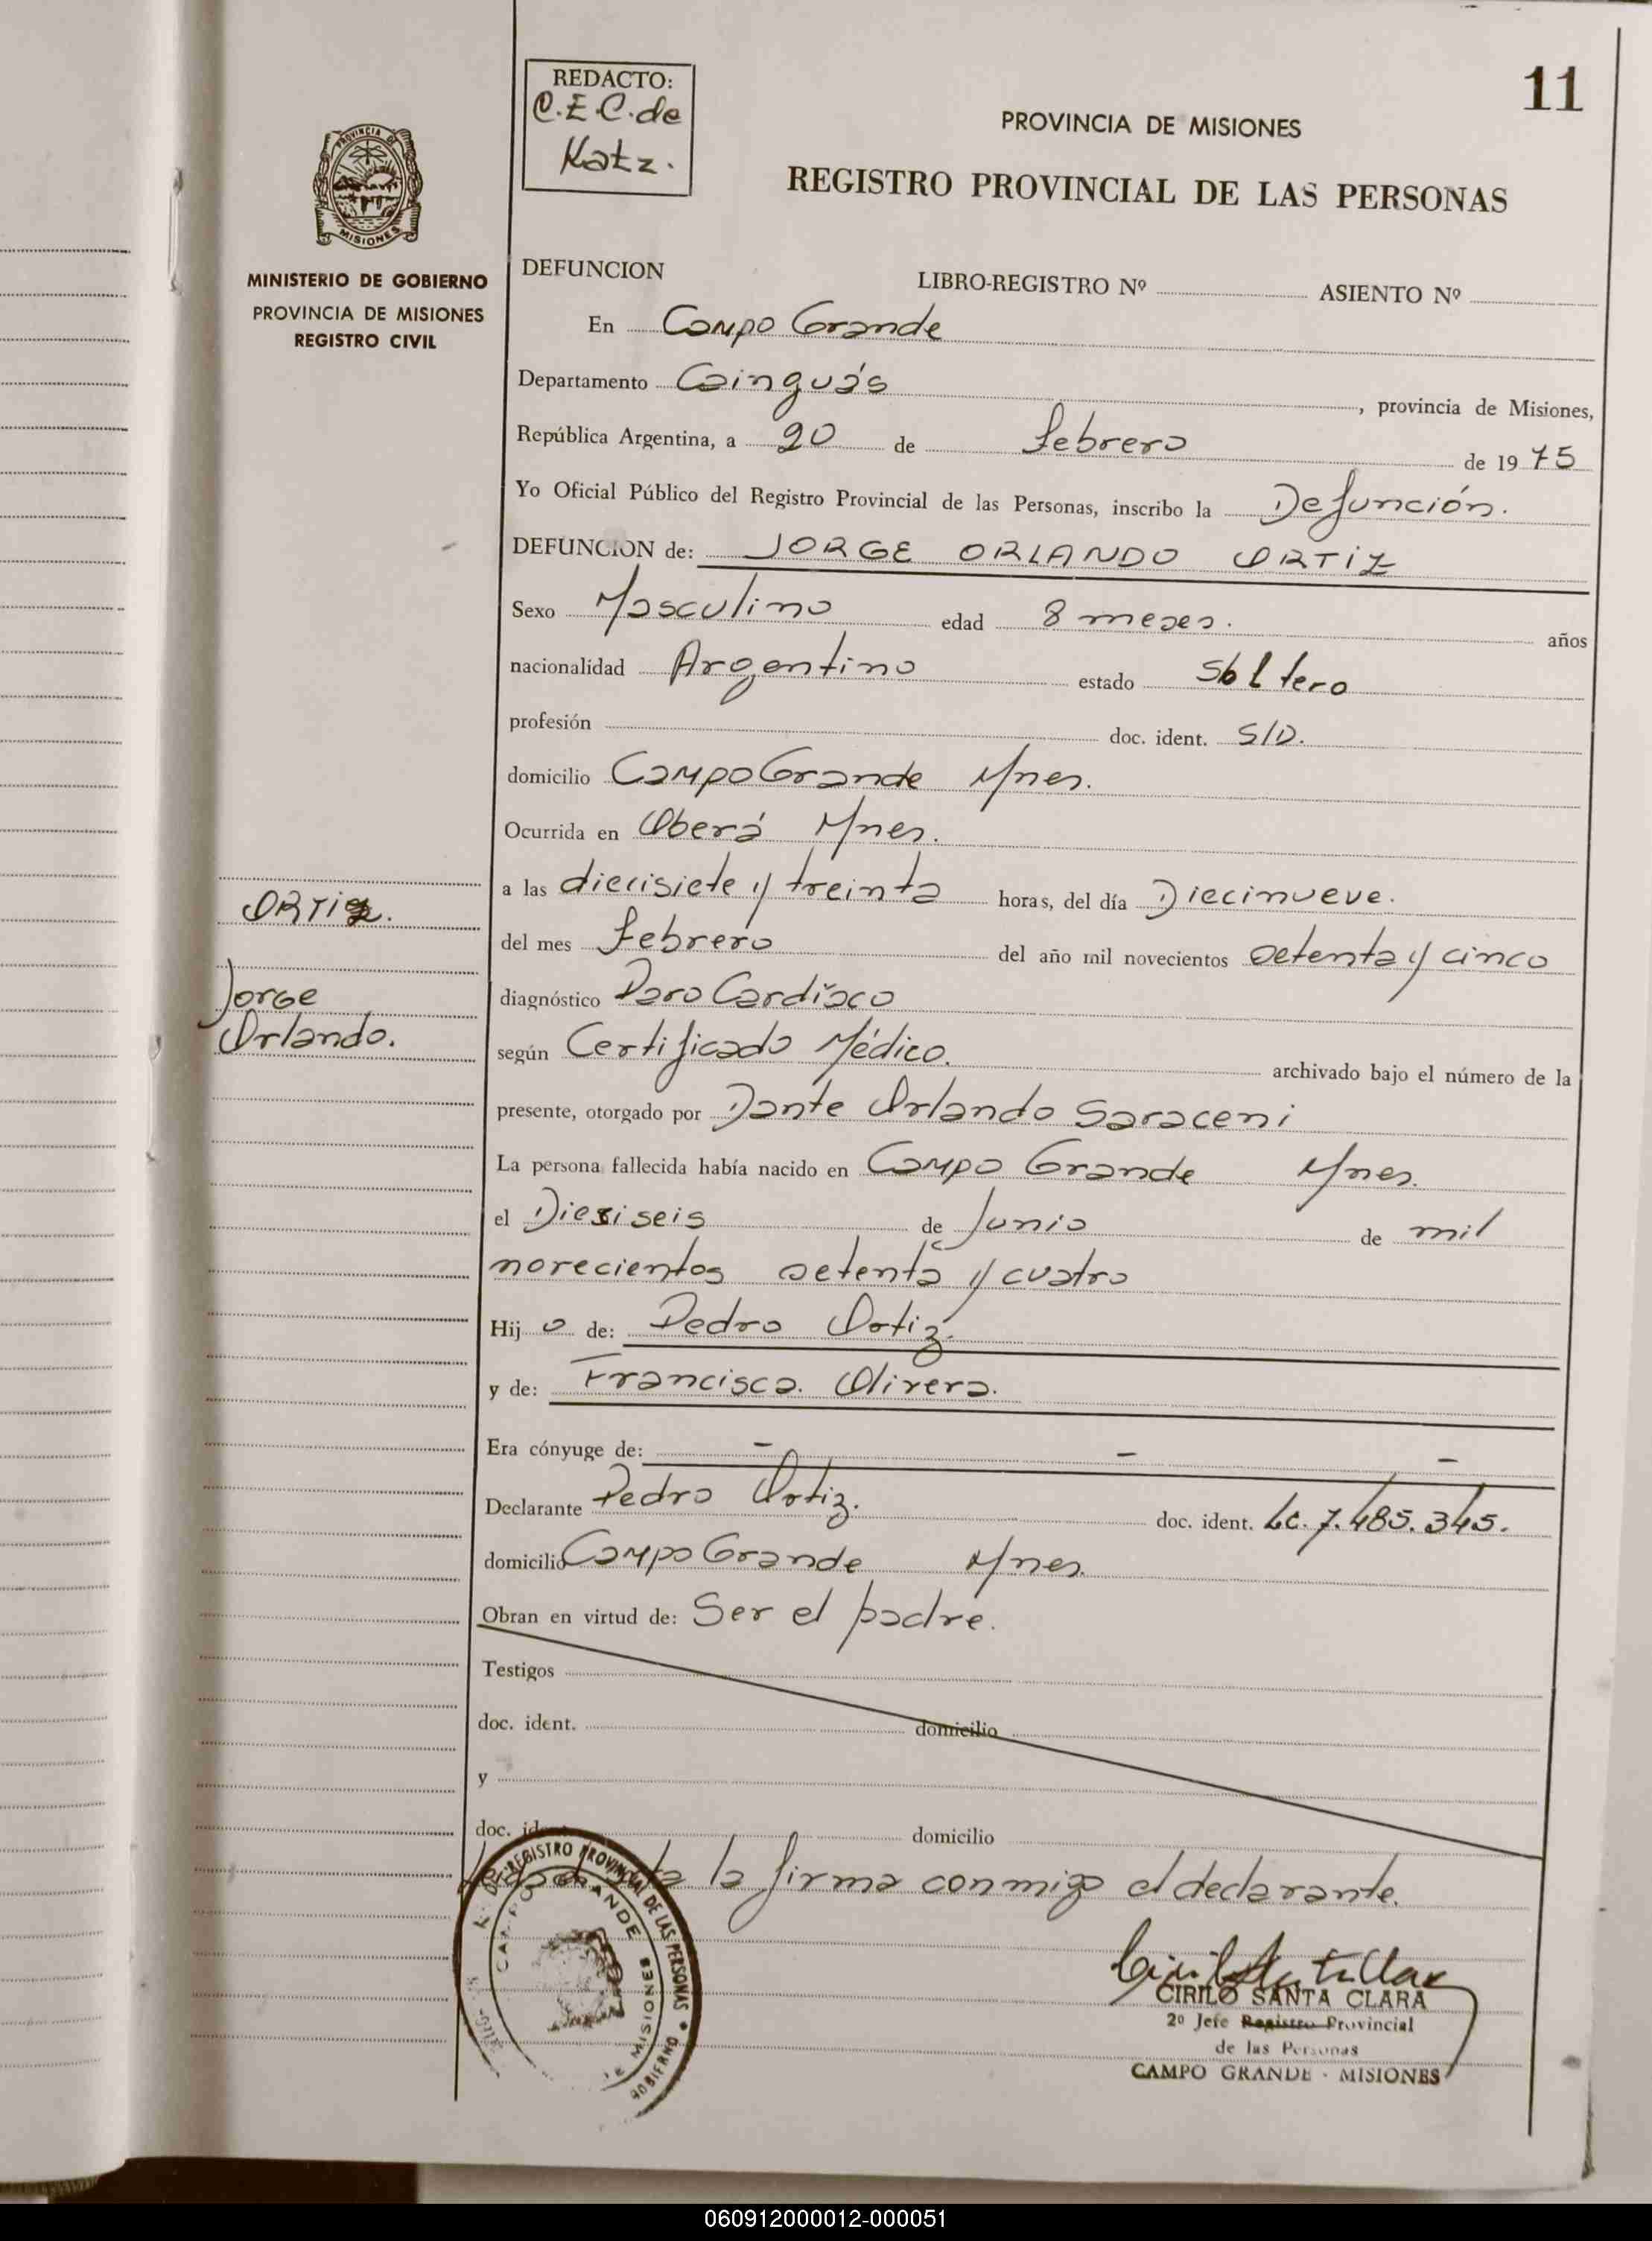 11
REDACTO:
C.E.C. de
Katz.
PROVINCIA DE MISIONES
REGISTRO PROVINCIAL DE LAS PERSONAS
PROVINCIA DE
MISIONES
MINISTERIO DE GOBIERNO
PROVINCIA DE MISIONES
REGISTRO CIVIL
DEFUNCION LIBRO-REGISTRO Nº ASIENTO Nº
En Campo Grande
Departamento Cainguás, provincia de Misiones,
República Argentina, a 20 de febrero de 1975
Yo Oficial Público del Registro Provincial de las Personas, inscribo la Defunción.
DEFUNCION de: JORGE ORLANDO ORTIZ
Sexo Masculino edad 8 meses. años
nacionalidad Argentino estado Soltero
profesión doc. ident. S/D.
domicilio Campo Grande Mnes.
Ocurrida en Oberá Mnes.
a las diecisiete y treinta horas, del día Diecinueve.
del mes febrero del año mil novecientos setenta y cinco
diagnóstico Paro Cardíaco
según Certificado Médico. archivado bajo el número de la
presente, otorgado por Dante Orlando Saraceni
La persona fallecida había nacido en Campo Grande Mnes.
el Diesiseis de Junio de mil
novecientos setenta y cuatro
Hijo de: Pedro Ortiz.
y de: Francisca. Olivera.
Era cónyuge de: - - -
Declarante Pedro Ortiz. doc. ident. Lc. 7.485.345.
domicilio Campo Grande Mnes.
Obran en virtud de: Ser el padre.
Testigos
doc. ident. domicilio
y
doc. ident. domicilio
la firma conmigo el declarante.
ORTIZ.
Jorge
Orlando.
REGISTRO PROVINCIAL DE LAS PERSONAS
GOBIERNO
CAMPO GRANDE MISIONES
CIRILO SANTA CLARA
2º Jefe Registro Provincial
de las Personas
CAMPO GRANDE - MISIONES
060912000012-000051